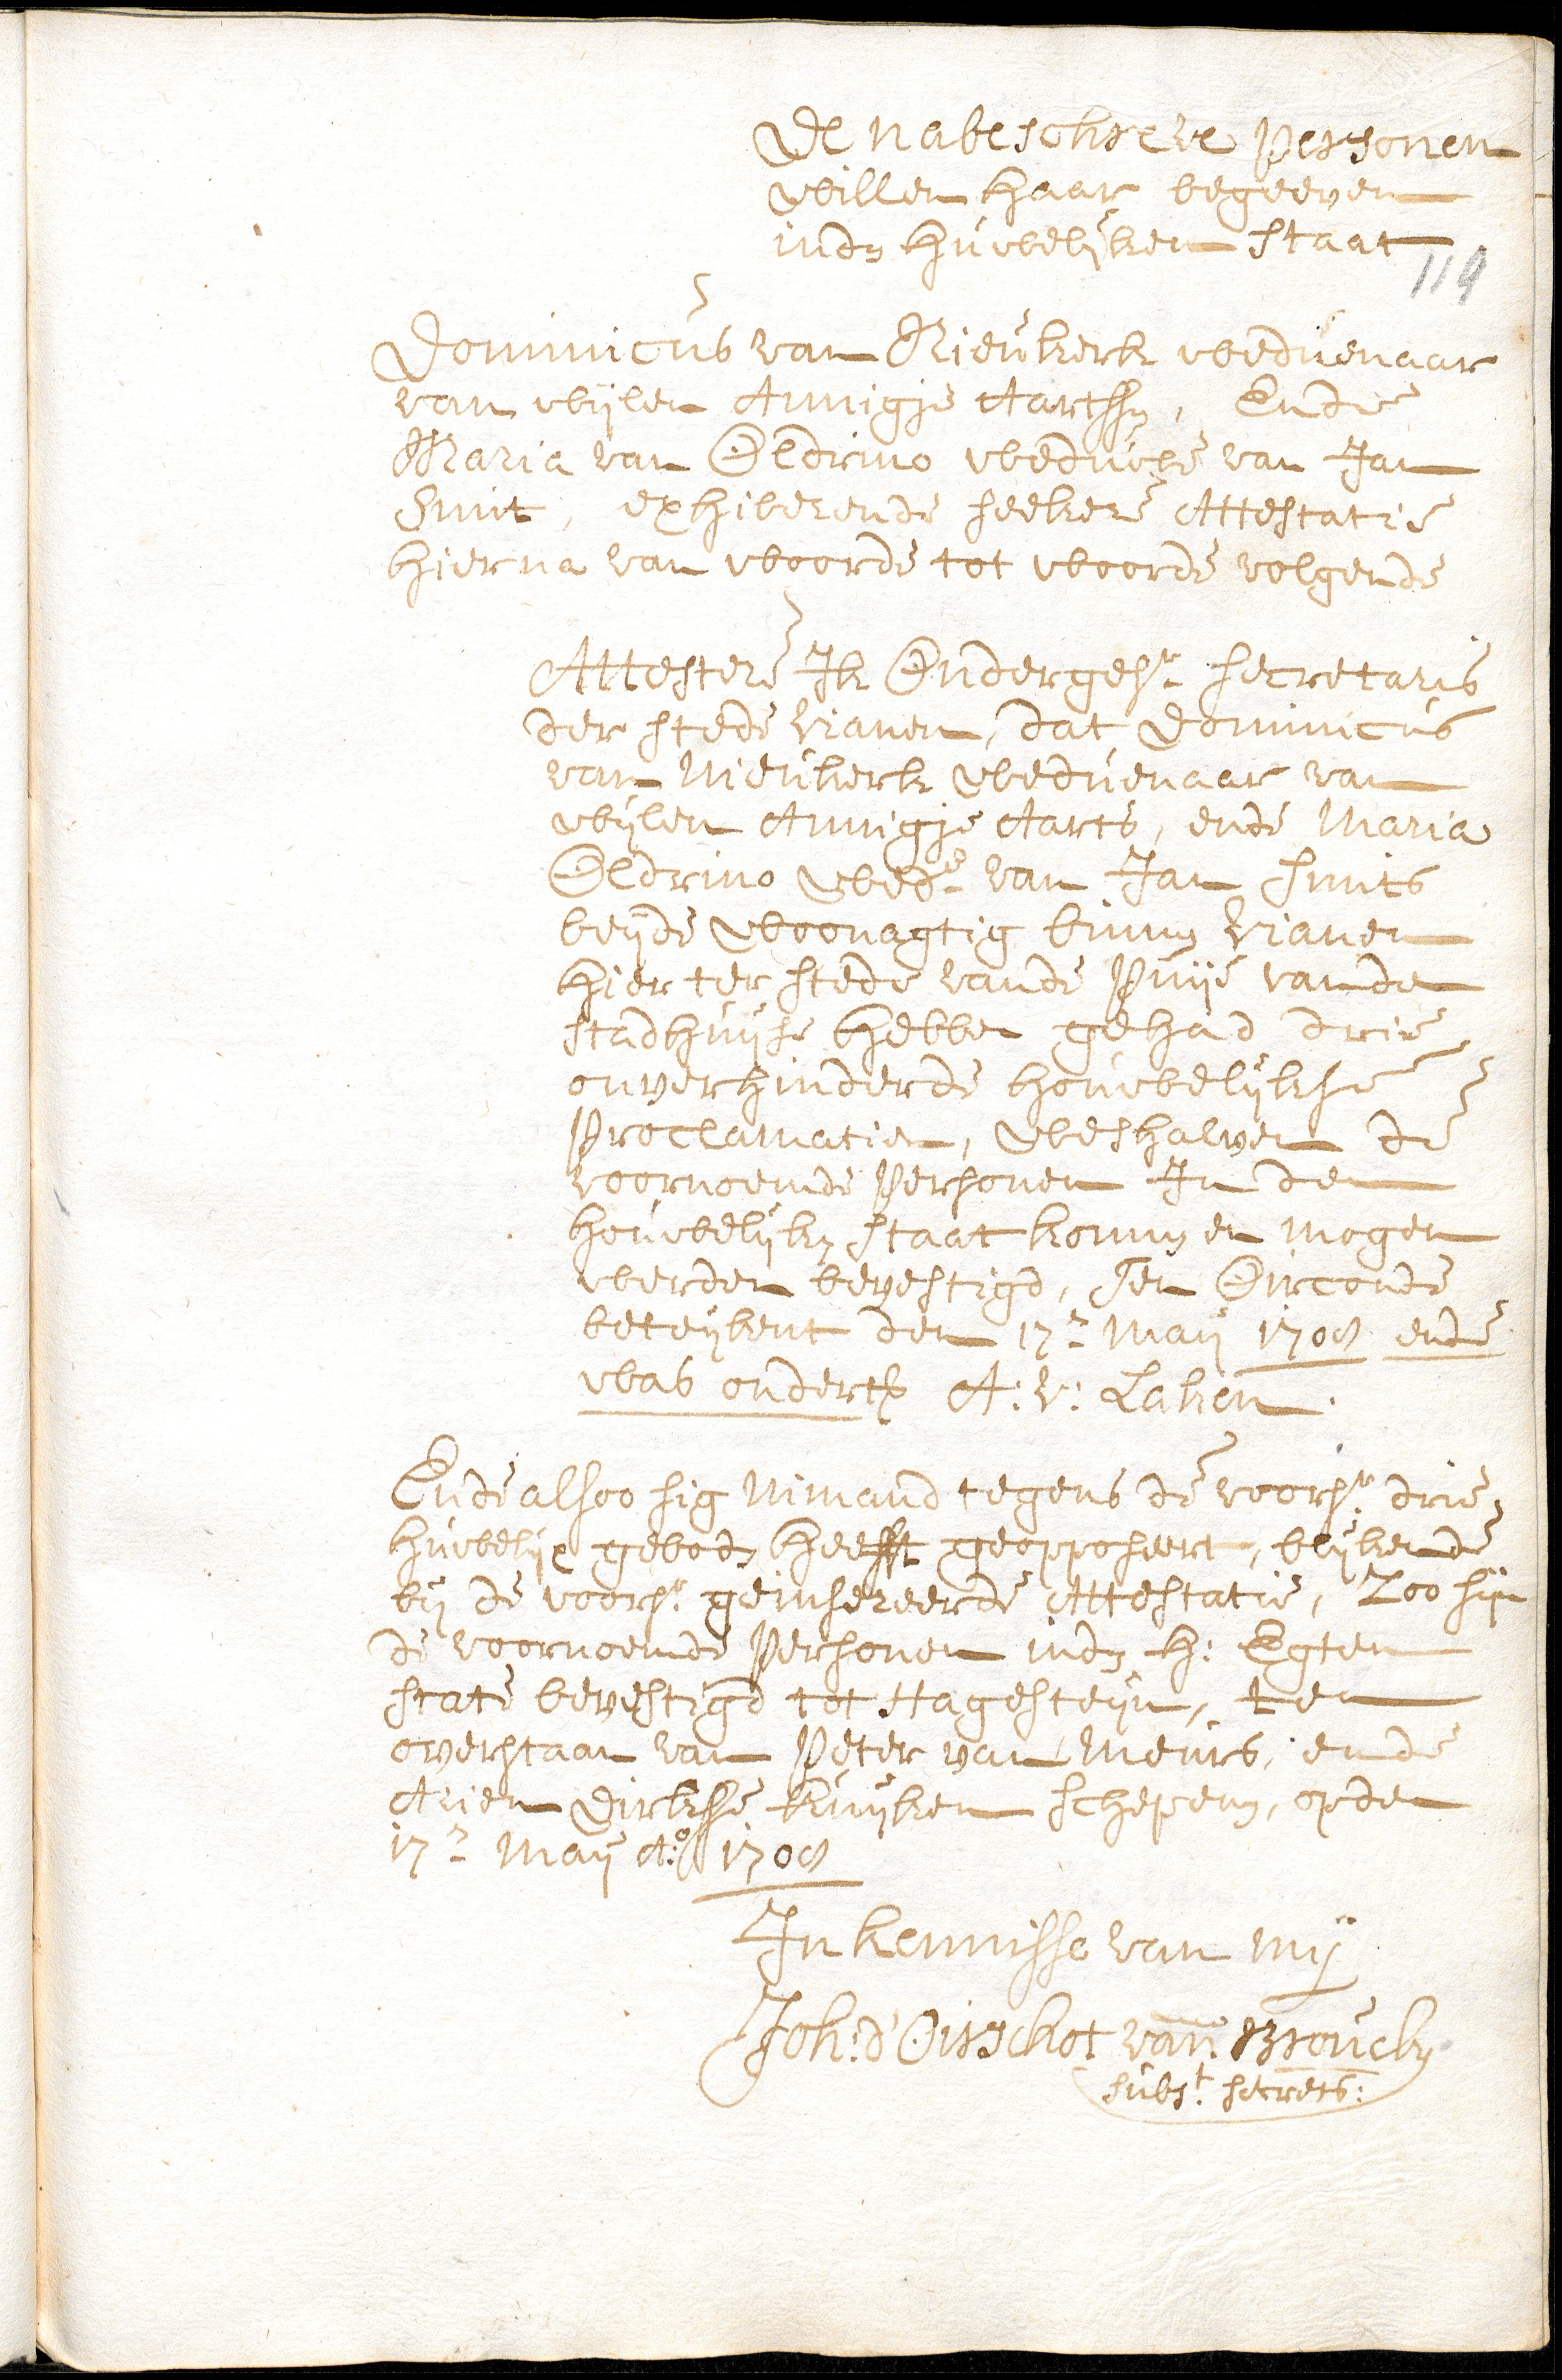 De nabeschreve personen
willen haar begeeven
indn huwelijken staat
119
Dominicus van Nieukerk weduenaar
van wijlen Annigje Aartssn, Ende
Maria van Oldrino weduwe van Jan
Smit, exhiberende seekere Attestatie
hier na van woorde tot woorde volgende
Attestere Ik Ondergesr. secretaris
der stede Vianen, dat Dominicus
van Nieukerk weduenaar van
wijlen Annigje Aarts, ende Maria
Oldrino wede. van Jan Smits
beijde woonagtig binnn Vianen
hier ter stede vande Puije vanden
stadhuijse hebben gehad drie
onverhinderde houwelijkse
Proclamatien, weshalven de
voornoemde Personen In den
houwelijkn staat konnn en mogen
werden bevestigd, Ten Oirconde
beteijkent den 17n. Maij 1708 ende
was ondertk A: V: Laken.
Ende alsoo sig Nimand tegens de voorsr. drie
huwelijx gebodn heefft geopposeert, blijkende
bij de voorsr. geinsereerde Attestatie, Zoo sijn
de voornoemde Personen indn H: Egten
state bevestigd tot Hagesteijn, ten
overstaan van Peter van Meurs, ende
Arien Dirkse Kuijken schepenn, opden
17n. Maij Ao. 1708
In kennisse van mij
Joh: d'Oirschot van Brouckn
subst. secrets: